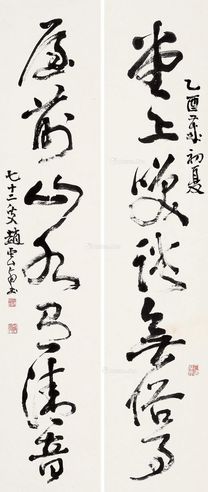 乙酉歲初夏
堂上咲談無俗事
屋前山水有清音
七十二叟趙雲壑